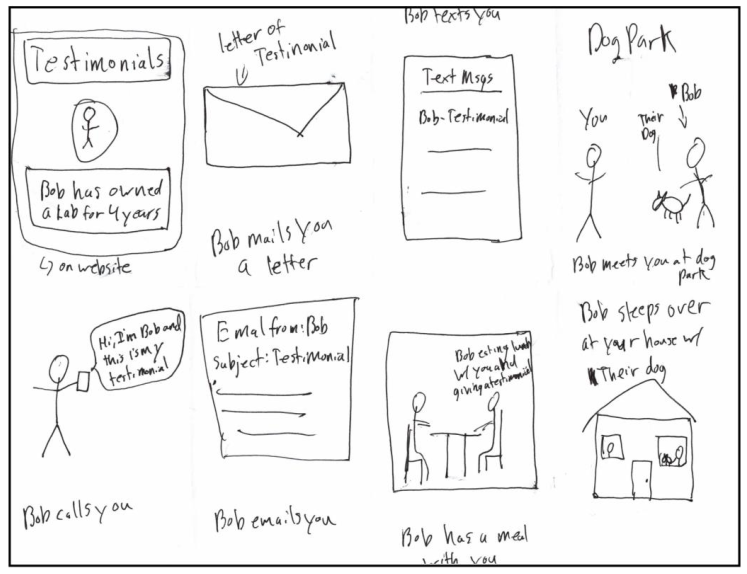 Testimonials
Bob has owned
a Lab for 4 years
↳ on website
letter of
Testimonial
Bob mails you
a letter
Bob texts you
Text Msgs
Bob-Testimonial
Dog Park
You
Their
Dog
Bob
Bob meets you at dog
park
Hi, I'm Bob and
this is my
testimonial
Bob calls you
Emal from: Bob
subject: Testimonial
Bob emails you
Bob eating lunch
w/ you and
giving a testimonial
Bob has a meal
with you
Bob sleeps over
at your house w/
Their dog